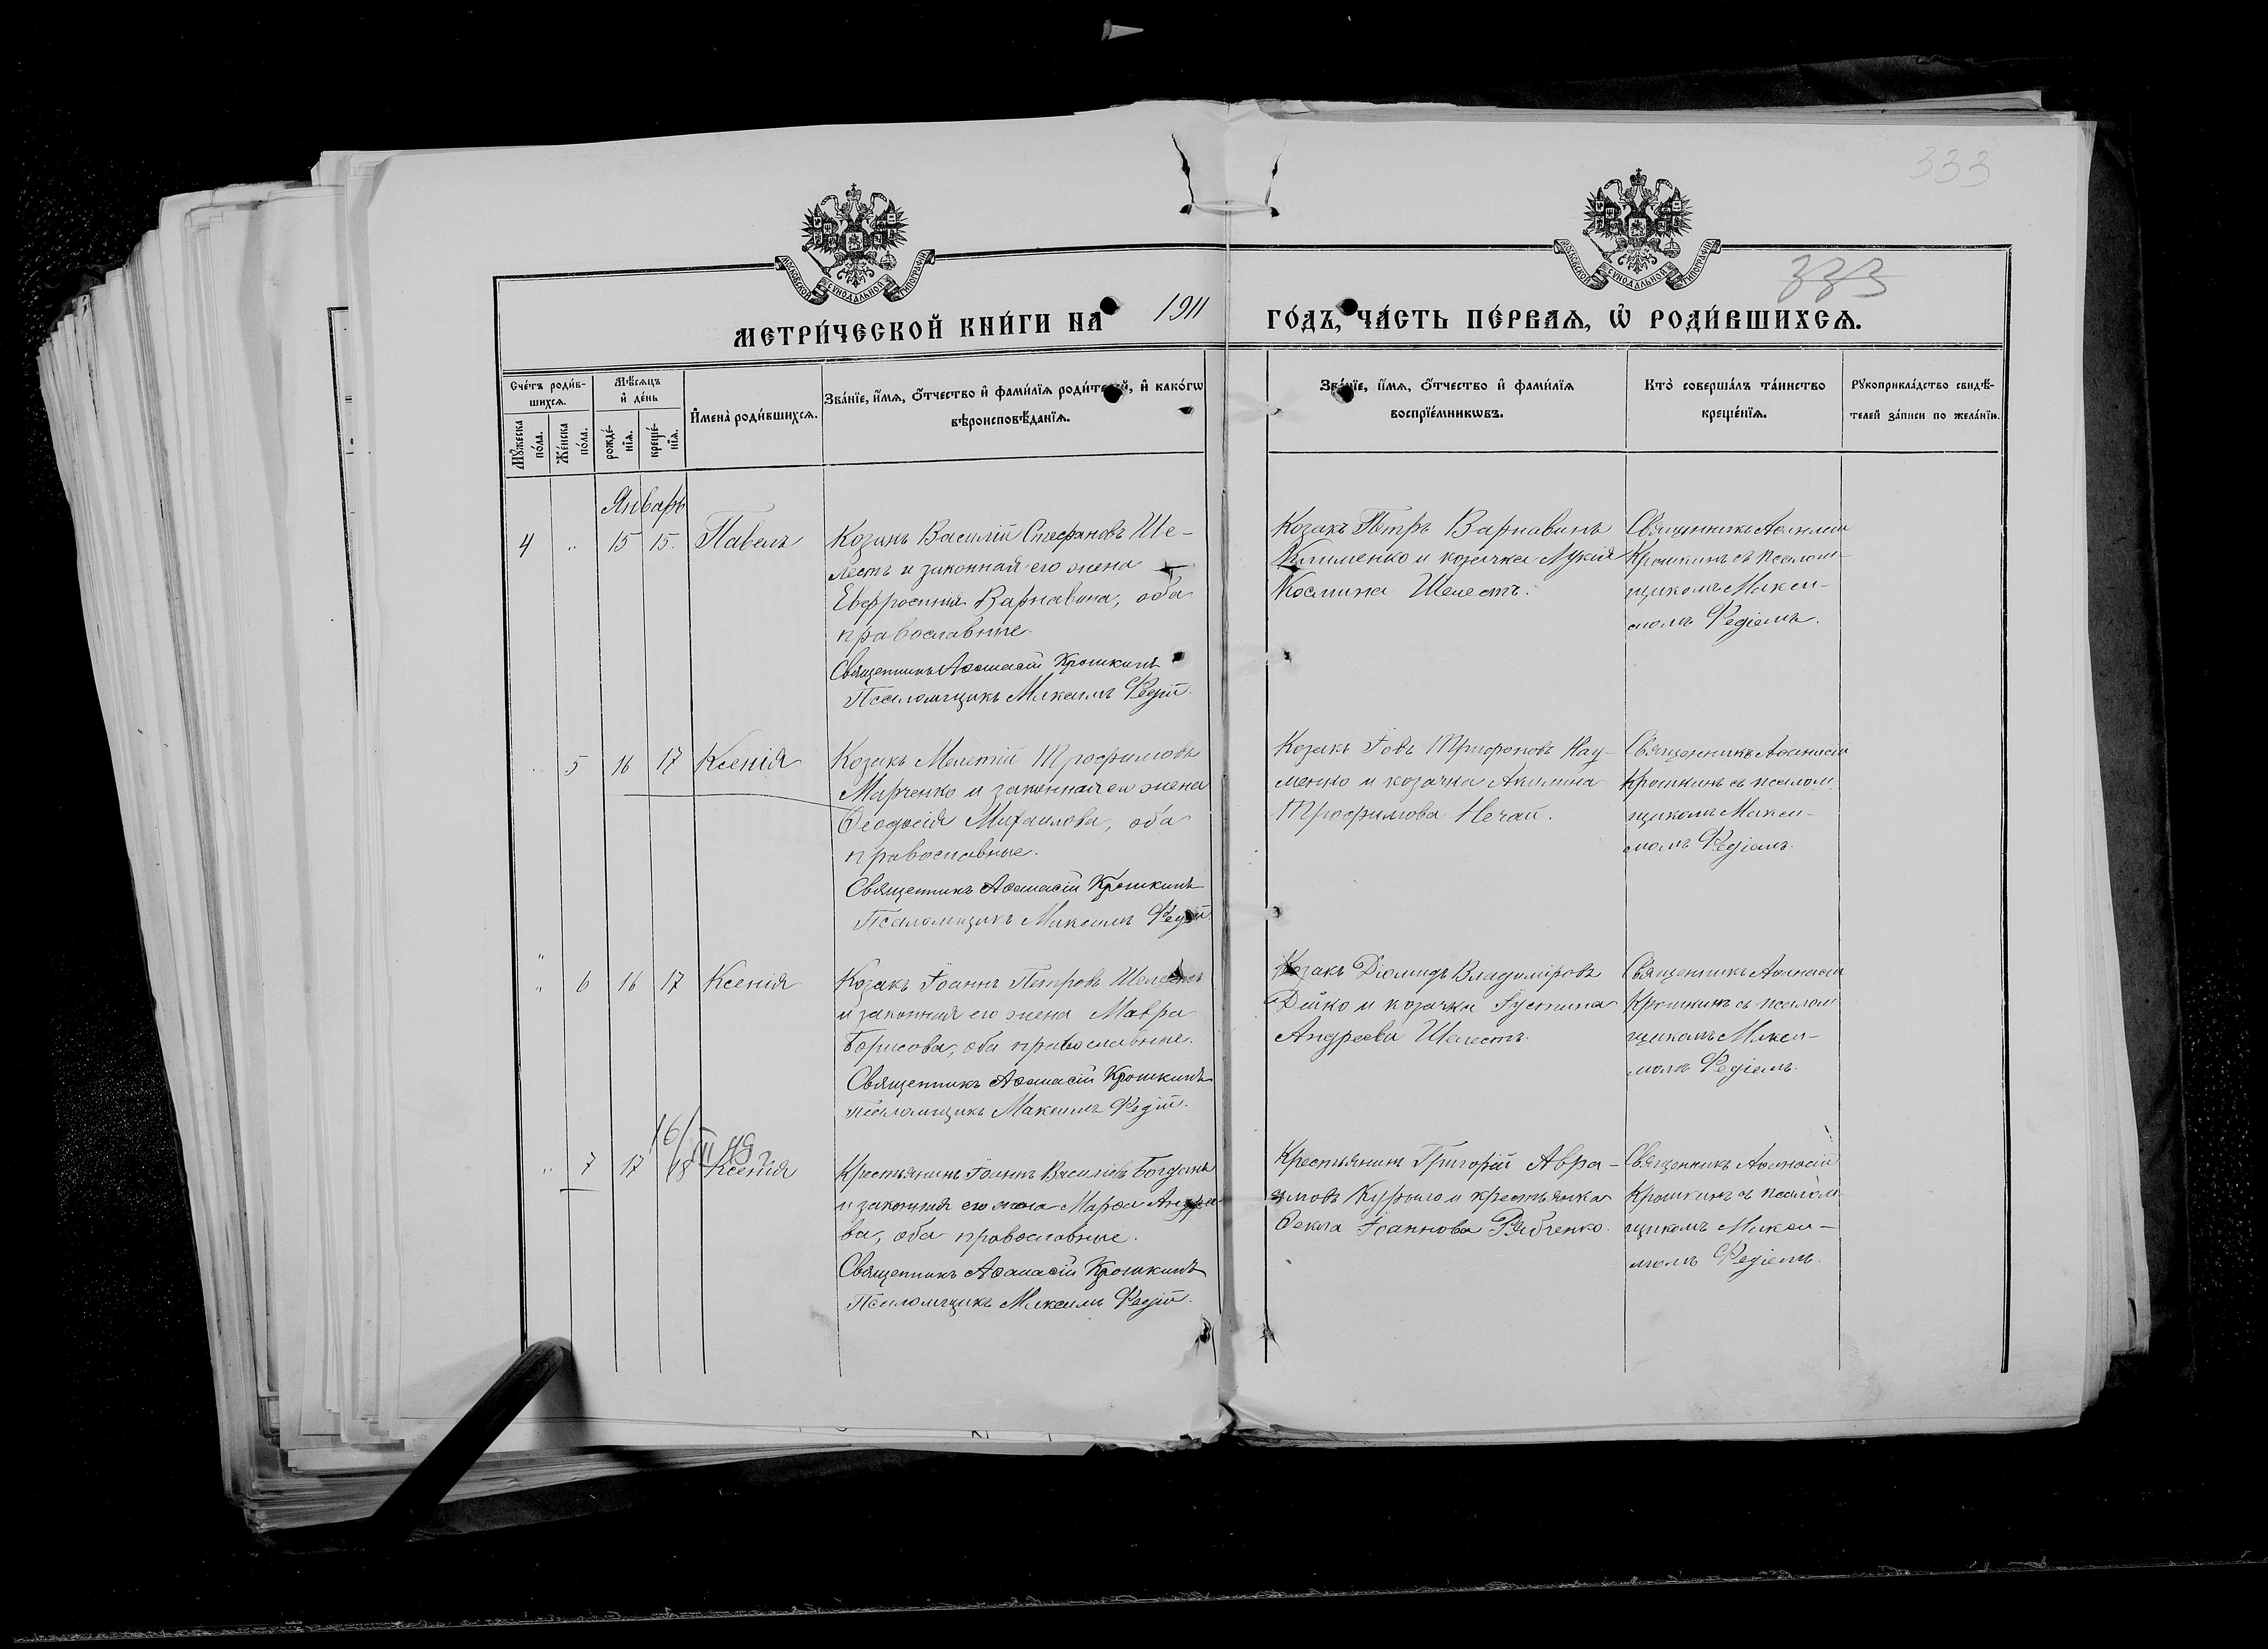 333
МОСКОВСКОЙ СѴНОДАЛЬНОЙ ТИПОГРАФІИ
МОСКОВСКОЙ СѴНОДАЛЬНОЙ ТИПОГРАФІИ
333
МЕТРИ́ЧЕСКОЙ КНИ́ГИ НА 1911 ГО́ДЪ, ЧА́СТЬ ПЕ́РВАѦ, Ѡ҆ РОДИ́ВШИХСѦ.
Сче́тъ роди́в-
шихсѧ.
Мꙋ́жеска по́ла.
Же́нска по́ла.
Мѣ́сѧцъ и҆ де́нь
рожде́-нїѧ.
креще́-нїѧ.
И҆мена̀ роди́вшихсѧ.
Зва́нїе, и҆́мѧ, ѻ҆́тчество и҆ фами́лїѧ роди́телей, и҆ како́гѡ
вѣроисповѣ́данїѧ.
Зва́нїе, и҆́мѧ, ѻ҆́тчество и҆ фами́лїѧ
воспрїе́мникѡвъ.
Кто̀ соверша́лъ та́инство
креще́нїѧ.
Рꙋкоприкла́дство свидѣ́-
телей за́писи по жела́нїю.
Январь
4 " 15 15. Павелъ
Козакъ Василій Стефановъ Ше-
лестъ и законная его жена
Евфросинія Варнавина, оба
православные.
Священникъ Аѳанасій Крошкинъ
Псаломщикъ Максимъ Редій.
Козакъ Петръ Варнавинъ
Клименко и козачка Лукія
Космина Шелестъ.
Священникъ Аѳанасій
Крошкинъ съ псалом-
щикомъ Макси-
момъ Редіемъ.
" 5 16 17 Ксенія
Козакъ Мелетій Трофимовъ
Марченко и законная его жена
Ѳеодосія Михаилова, оба
православные.
Священникъ Аѳанасій Крошкинъ
Псаломщикъ Максимъ Редій
Козакъ Іовъ Трифоновъ Нау-
менко и козачка Акилина
Трофимова Нечай.
Священникъ Аѳанасій
Крошкинъ съ псалом-
щикомъ Макси-
момъ Редіемъ.
"
" 6 16 17 Ксенія
Козакъ Іоаннъ Петровъ Шелестъ
и законная его жена Мавра
Борисова, оба православные.
Священникъ Аѳанасій Крошкинъ
Псаломщикъ Максимъ Редій.
Козакъ Діомидъ Владиміровъ
Дейко и козачка Іустина
Андреева Шелестъ.
Священникъ Аѳанасій
Крошкинъ съ псалом
щикомъ Макси-
момъ Редіемъ.
" 7 17 18 Ксенія
Крестьянинъ Іоаннъ Василіевъ Богданъ
и законная его жена Марѳа Андрее-
ва, оба православные.
Священникъ Аѳанасій Крошкинъ
Псаломщикъ Максимъ Редій.
Крестьянинъ Григорій Авра-
амовъ Курыло и крестьянка
Ѳекла Іоаннова Рябченко.
Священникъ Аѳанасій
Крошкинъ съ псалом-
щикомъ Макси-
момъ Редіемъ.